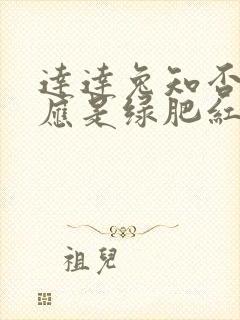 達達兔知否
應是綠肥紅
祖兒